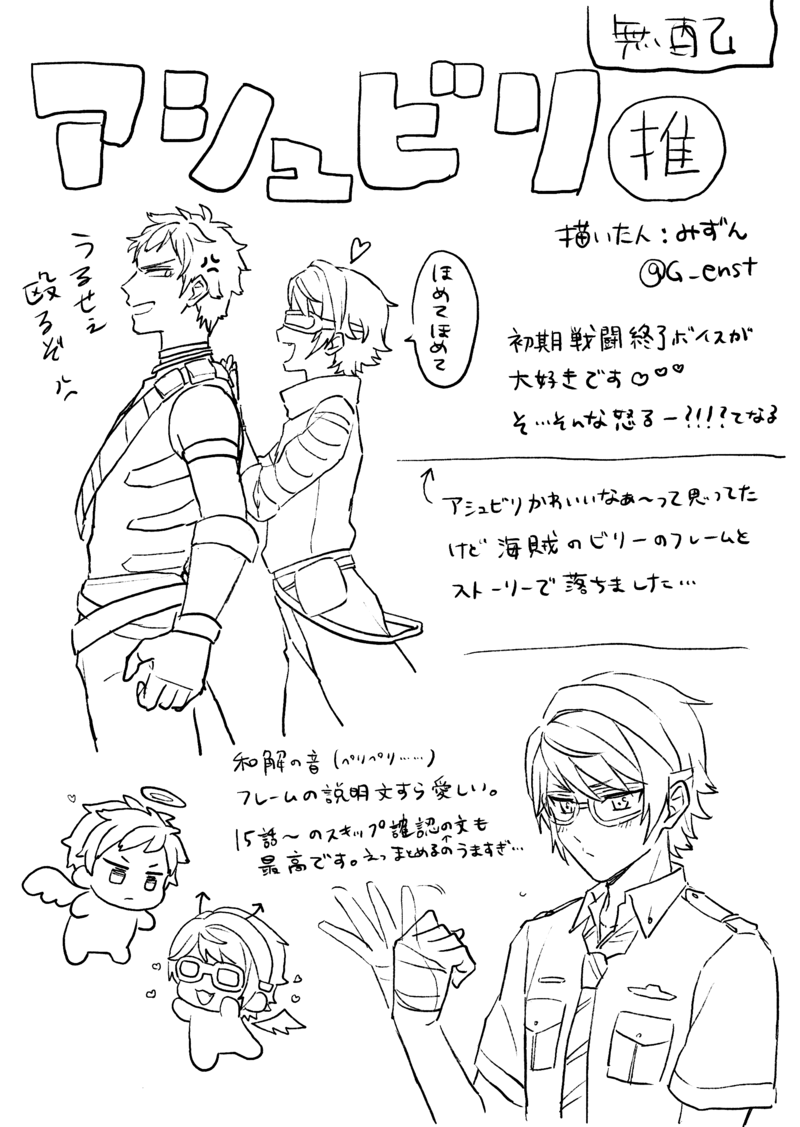 無配
アシュビリ
推
描いた人:みずん
@G_enst
うるせぇ
殴るぞ
ほめてほめて
初期戦闘終了ボイスが
大好きです♡♡♡
そ…そんな怒るー?!!!?てなる
↑
アシュビリかわいいなぁ〜って思ってた
けど海賊のビリーのフレームと
ストーリーで落ちました…
和解の音(ペリペリ……)
フレームの説明文すら愛しい。
15話〜のスキップ確認の文も
最高です。えっまとめるのうますぎ…